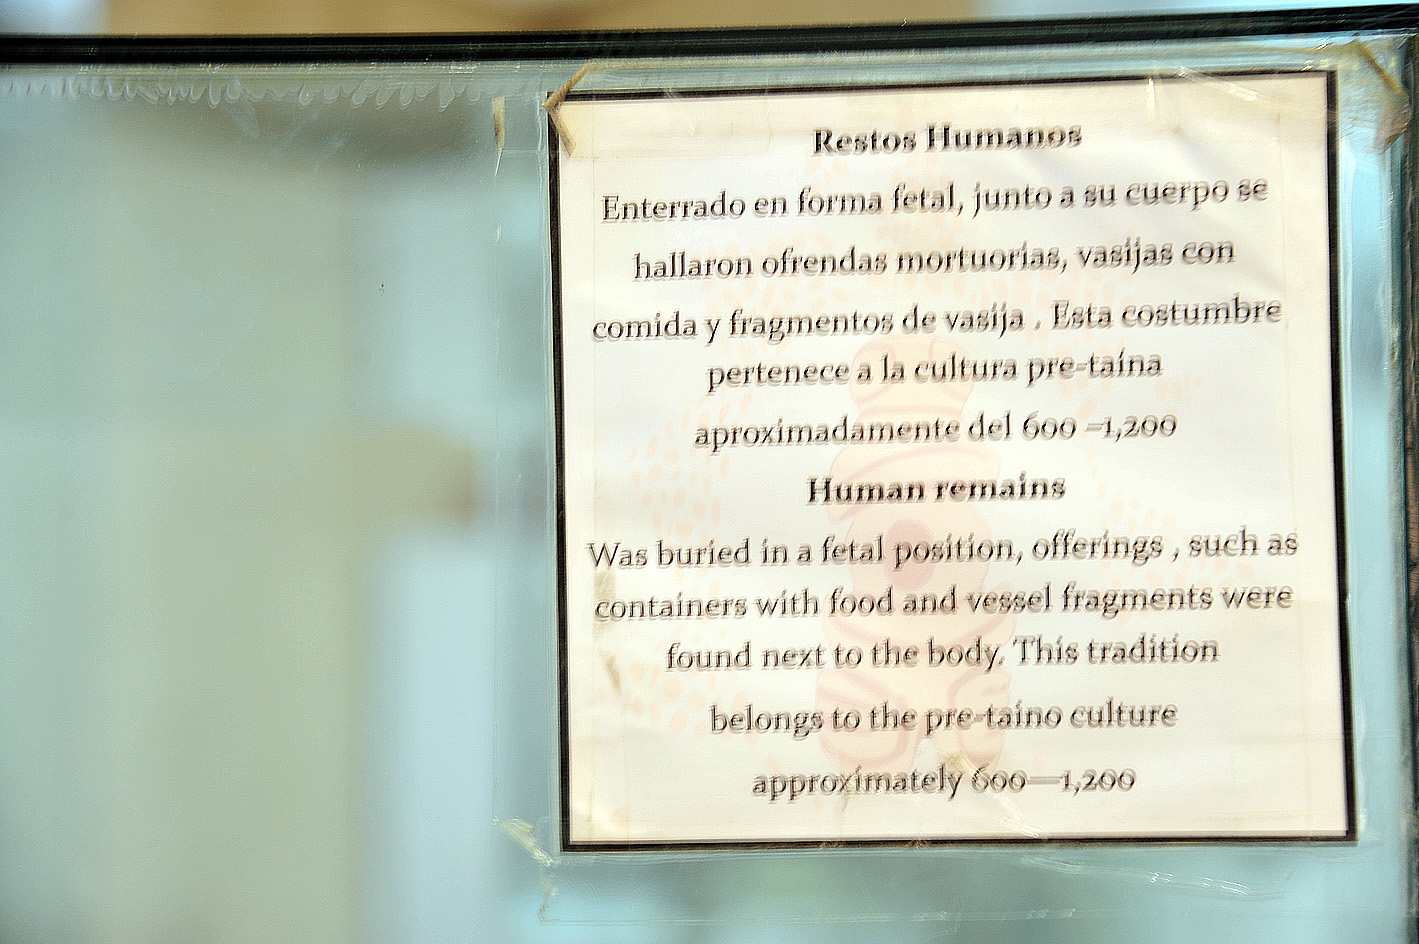 Restos Humanos
Enterrado en forma fetal, junto a su cuerpo se
hallaron ofrendas mortuorias, vasijas con
comida y fragmentos de vasija . Esta costumbre
pertenece a la cultura pre-taína
aproximadamente del 600 –1,200
Human remains
Was buried in a fetal position, offerings , such as
containers with food and vessel fragments were
found next to the body. This tradition
belongs to the pre-taino culture
approximately 600—1,200